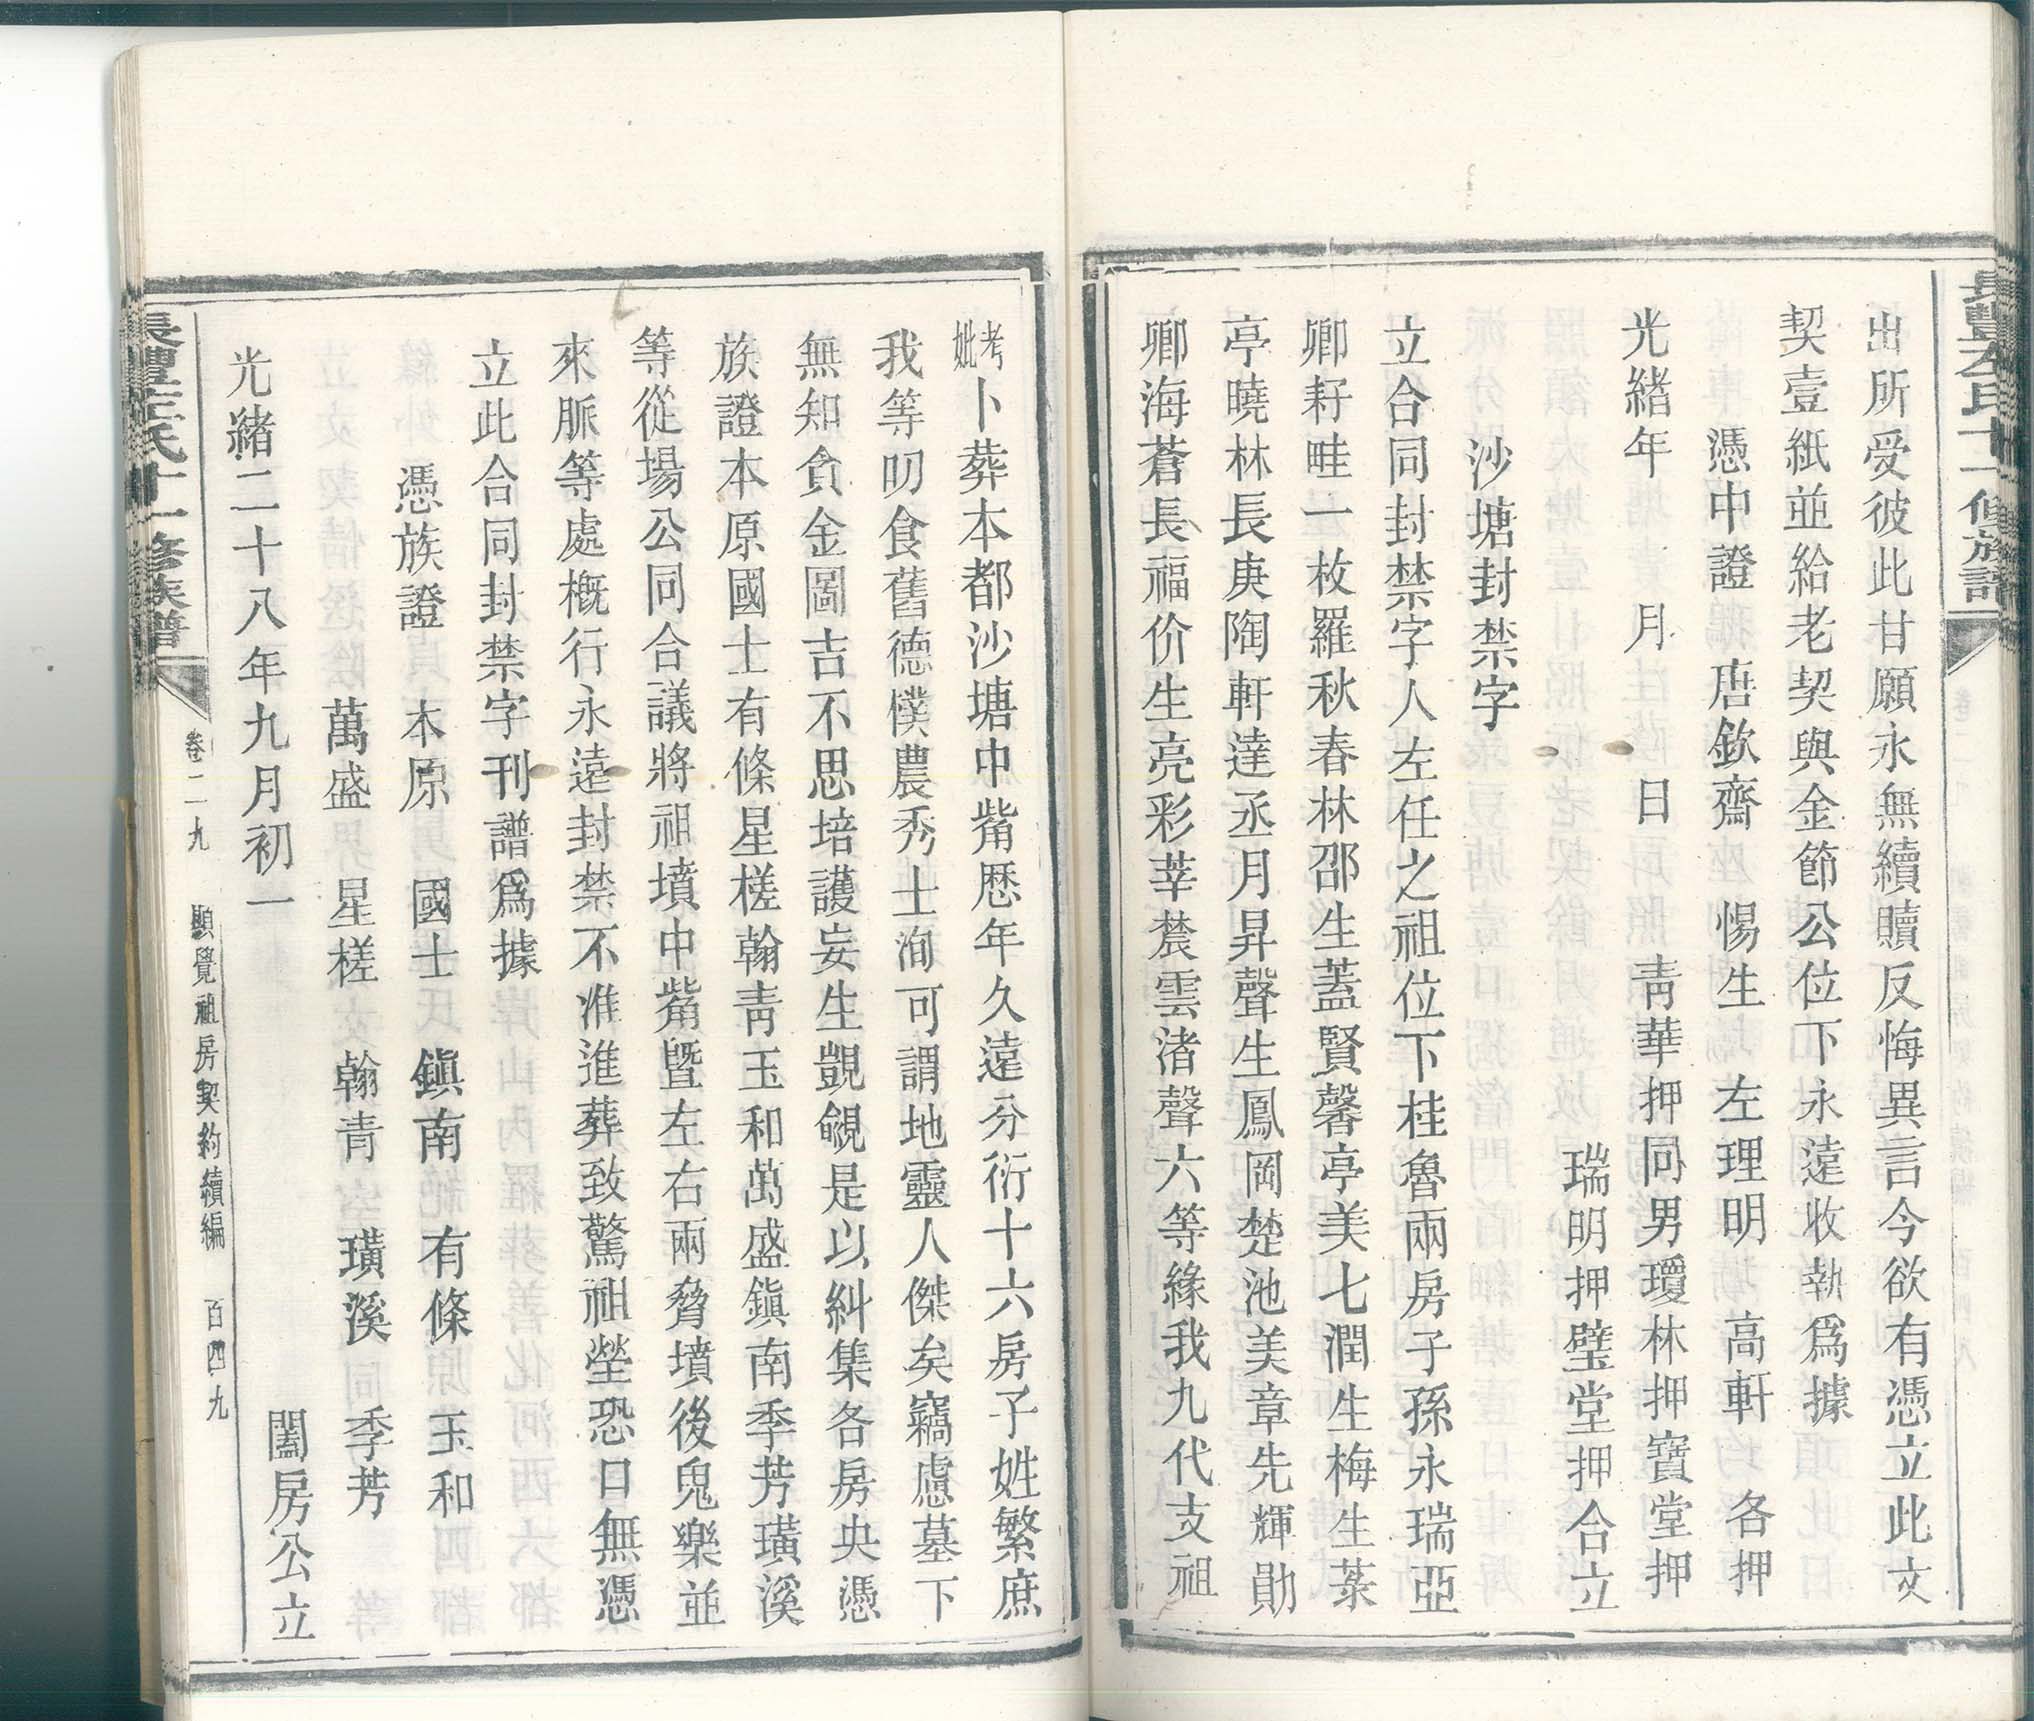 長豐左氏十一修族譜
出所受彼此甘願永無續贖反悔異言今欲有憑立此文
契壹紙並給老契與金節公位下永遠收執爲據
憑中證 唐欽齋 惕生 左理明 高軒 各押
光緒年 月 日 靑華押同男瓊林押寶堂押
瑞明押璧堂押合立
沙塘封禁字
立合同封禁字人左任之祖位下桂魯兩房子孫永瑞亞
卿耔畦一枚羅秋春林邵生蓋賢馨亭美七潤生梅生菉
亭曉林長庚陶軒達丞月昇聲生鳳岡楚池美章先輝勛
卿海蒼長福价生亮彩莘農雲渚聲六等緣我九代支祖
考妣卜葬本都沙塘中觜歷年久遠分衍十六房子姓繁庶
我等叨食舊德樸農秀士洵可謂地靈人傑矣竊慮墓下
無知貪金圖吉不思培護妄生覬覦是以糾集各房央憑
族證本原國士有條星槎翰靑玉和萬盛鎭南季芳璜溪
等從場公同合議將祖墳中觜暨左右兩脅墳後皃樂並
來脈等處概行永遠封禁不准進葬致驚祖塋恐口無憑
立此合同封禁字刊譜爲據
憑族證 本原 國士 鎭南 有條 玉和
萬盛 星槎 翰靑 璜溪 季芳
光緒二十八年九月初一 闔房公立
長豐左氏十一修族譜 卷二九 顯覺祖房契約續編 百四九